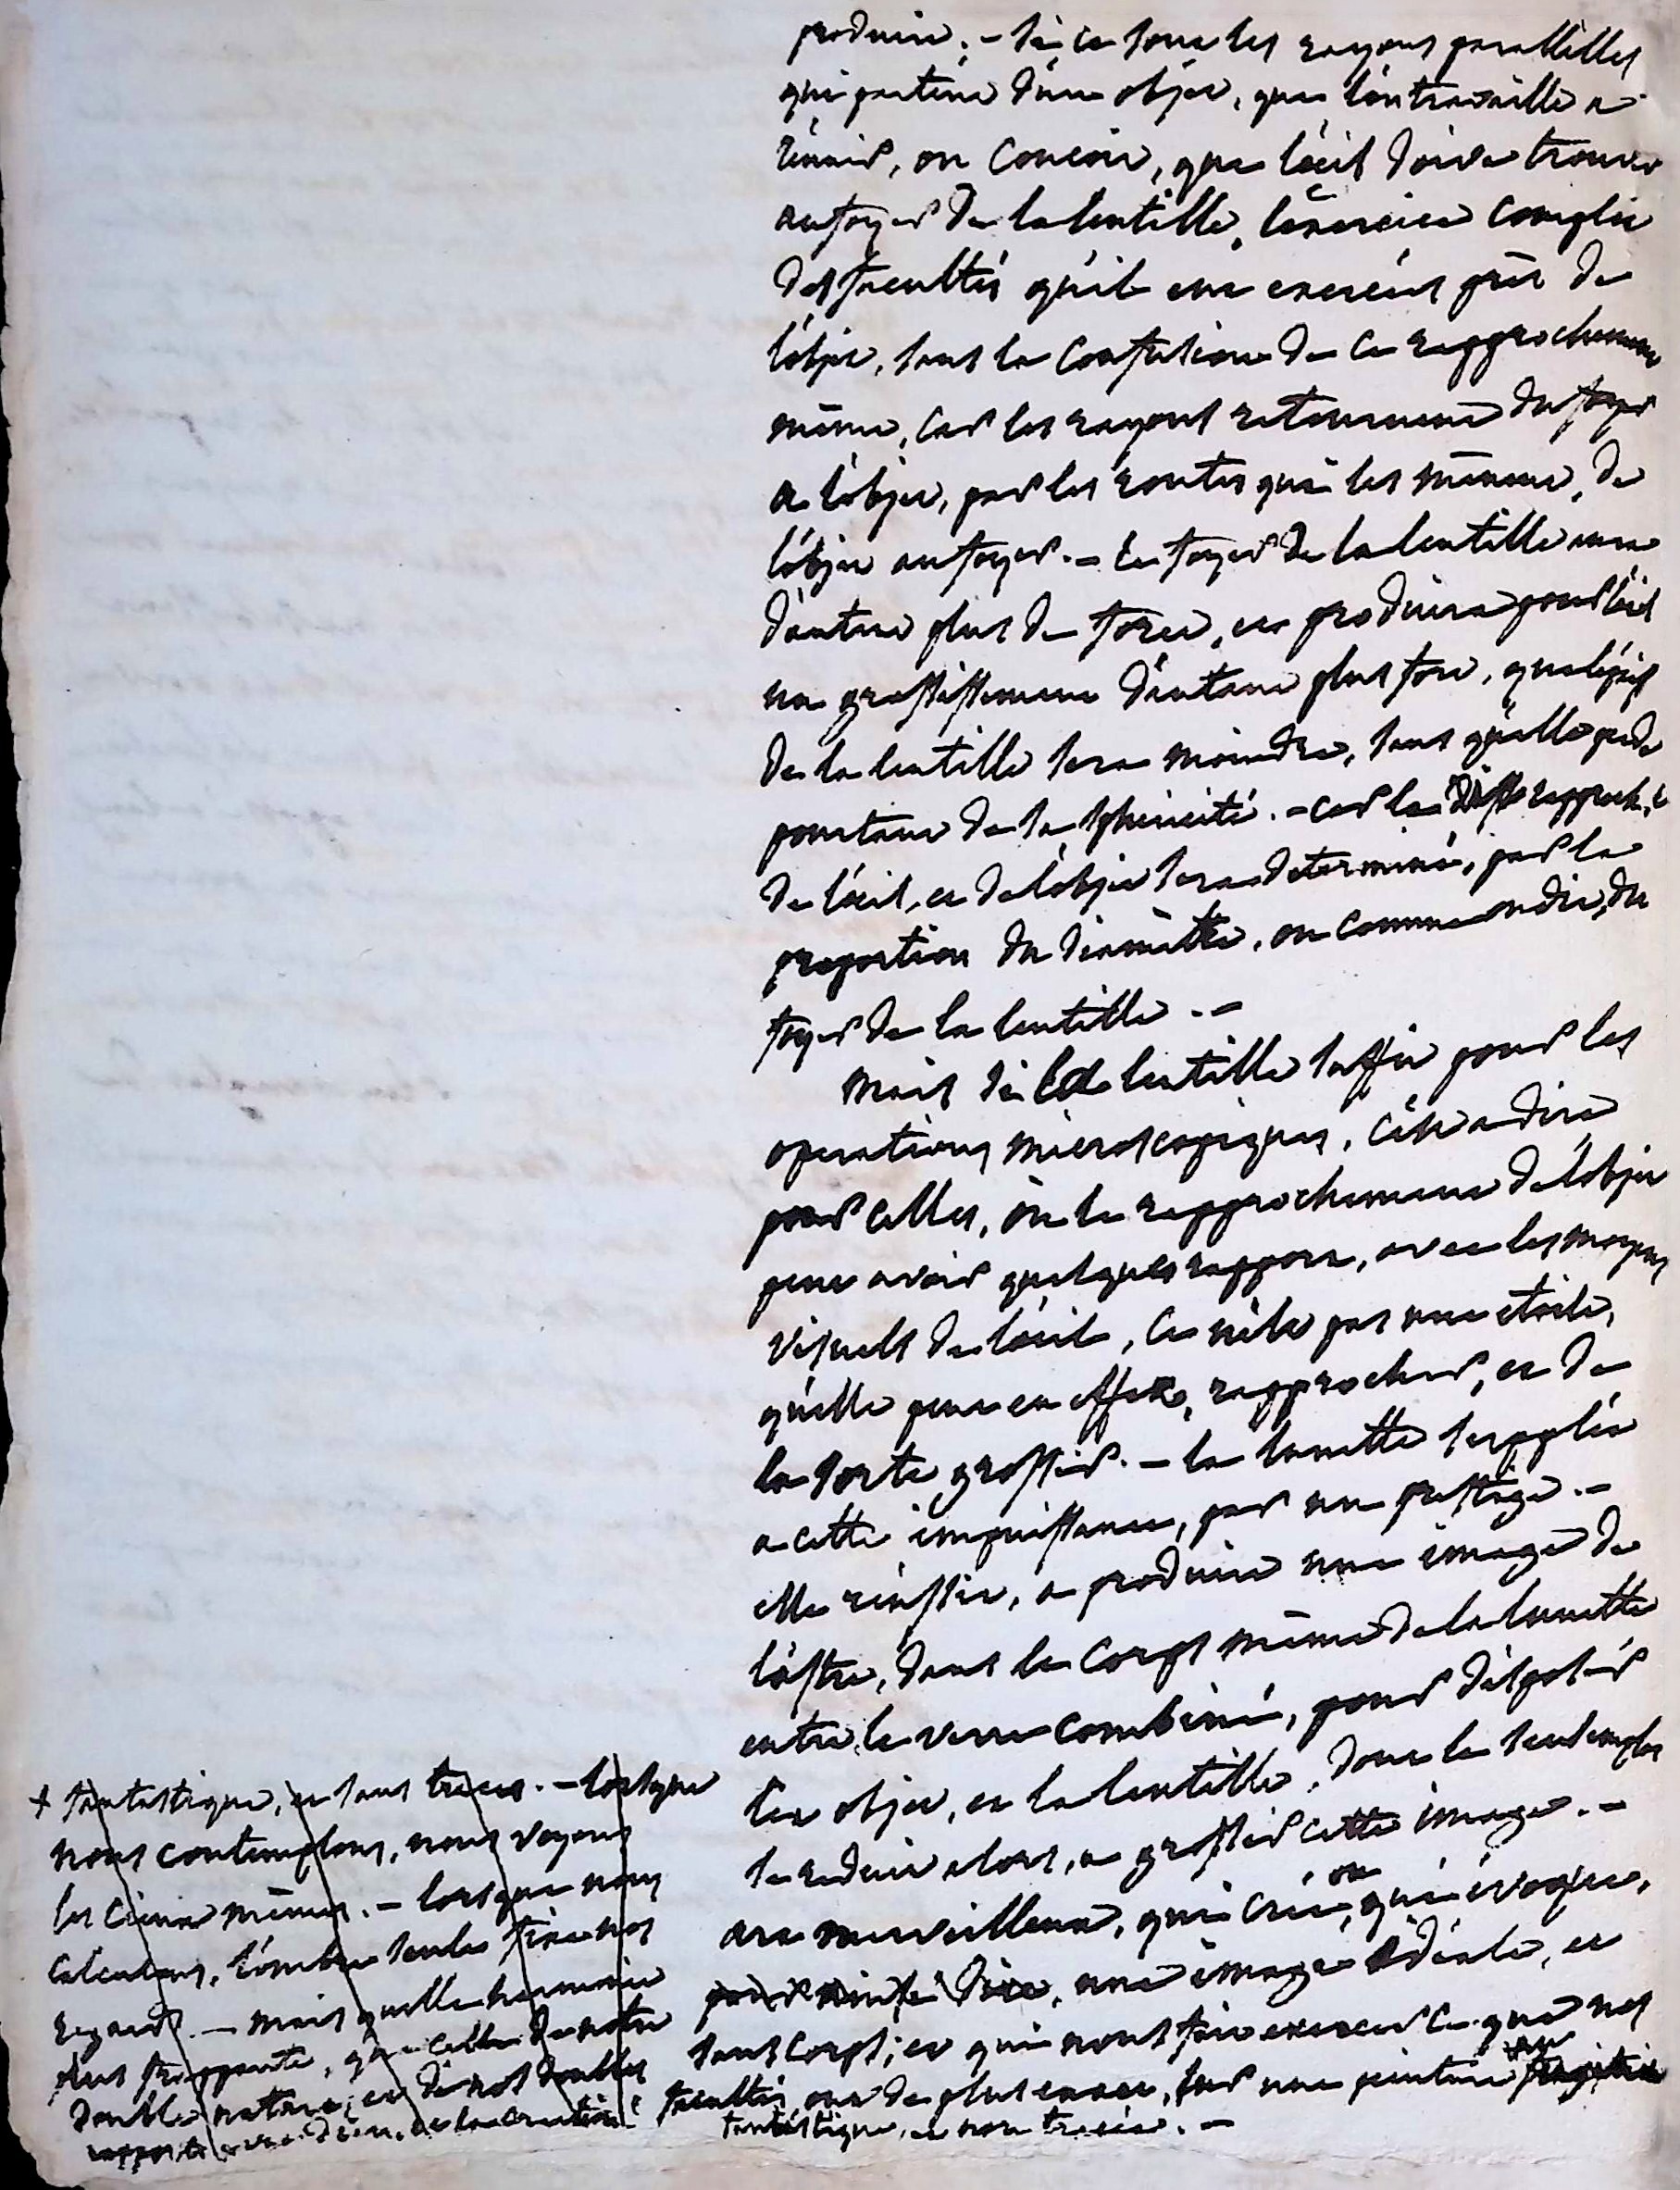 produire. - Si ce sont les rayons parallelles
qui partent d'un objet, que l'on travaille a
réunir, on concoit, que l'œil doive trouver
au foyer de la lentille, l'exercice complet
des facultés qu'il eut exercées près de
l'objet, sans la confusion de ce rapprochement
même, car les rayons retournent du foyer
a l'objet, par les routes qui les mènent, de
l'objet au foyer. - le foyer de la lentille aura
d'autant plus de force, et produira pour l'œil
un grossissement d'autant plus fort, que l'épaiss
de la lentille sera moindre, sans qu'elle perde
pourtant de sa sphéricité. - car le rapproch.t
de l'œil, et de l'objet sera determiné, par la
proportion du diamètre, ou comme on dit, du
foyer de la lentille. -
mais si la lentille suffit pour les
operations microscopiques, c'est a dire
pour celles, où le rapprochement de l'objet
peut avoir quelques rapport, avec les moyens
visuels de l'œil, ce n'est pas une etoile,
qu'elle peut en effet, rapprocher, et de
la sorte grossir. - la lunette supplée
a cette impuissance, par un prestige. -
elle réussit, a produire une image de
l'astre, dans le corps même de la lunette
entre le verre combiné, pour disposer
cet objet, et la lentille, dont le seul emploi
se reduit alors, a grossir cette image. -
art merveilleux, qui crée, ou qui évoque,
pour ainsi dire, une image idéale, et
sans corps; et qui nous fait exercer ce que nos
facultés ont de plus exact, sur une peinture
fantastique, et non tracée. -
+ fantastique, et sans traces. - lorsque
nous contemplons, nous voyons
les cieux mêmes. - lorsque nous
calculons, l'ombre seule fixe nos
regards. - mais quelle harmonie
plus frappante, que celle de notre
double nature, et de nos doubles
rapports avec dieu, et la creation!